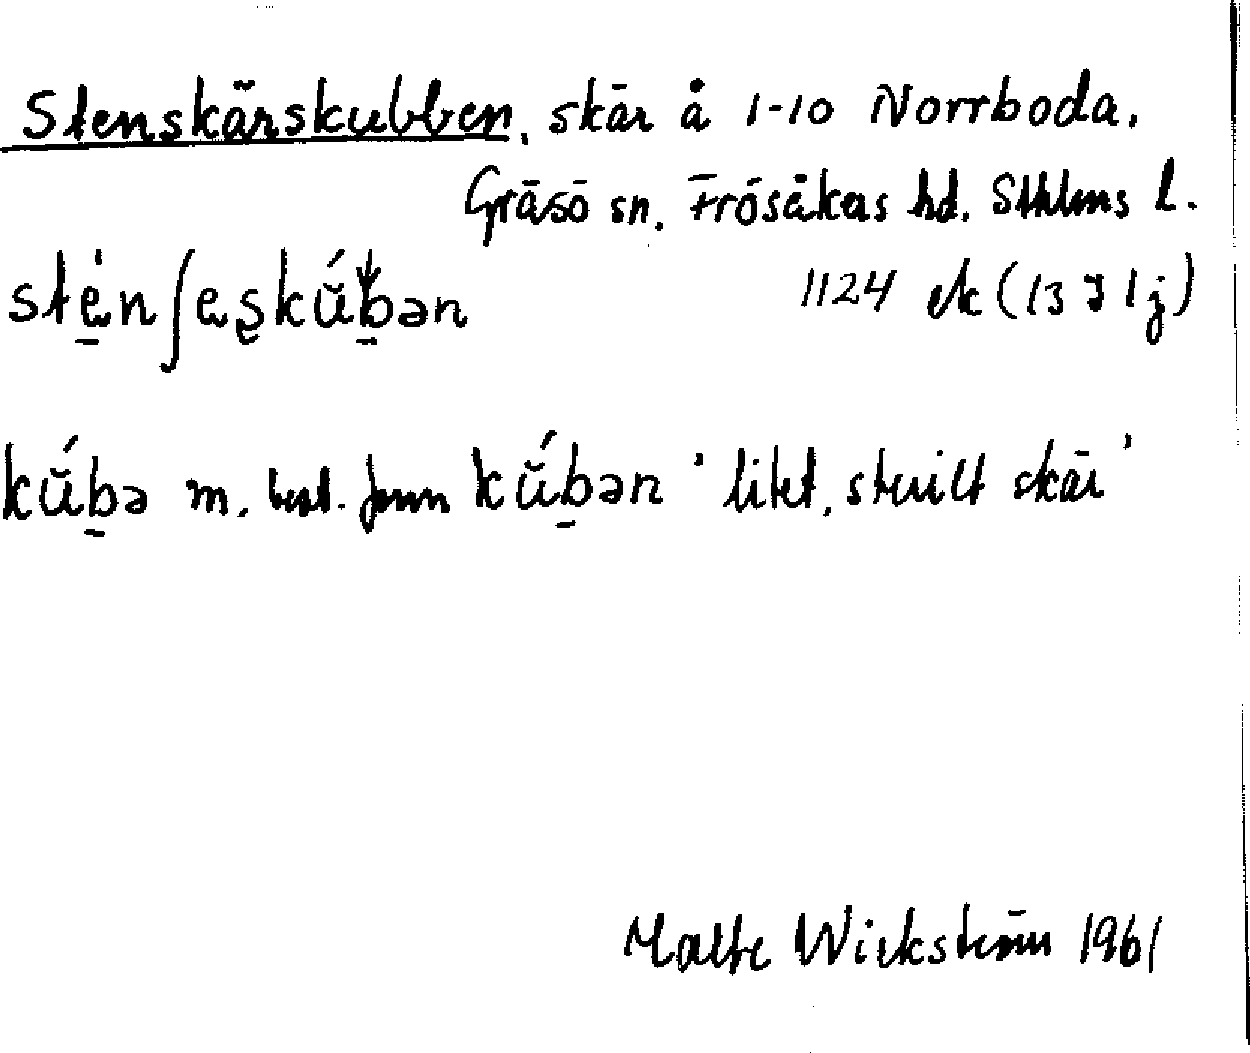 Stenskärskubben, skär å 1-10 Norrboda.
Gräsö sn. Frösåkers hd. Sthlms l.
stėn∫eşkŭ́bən 1124 ek (13 I 1 j)
kŭ́bə m. best. form kŭ́bən 'litet, sterilt skär'
Malte Wickström 1961